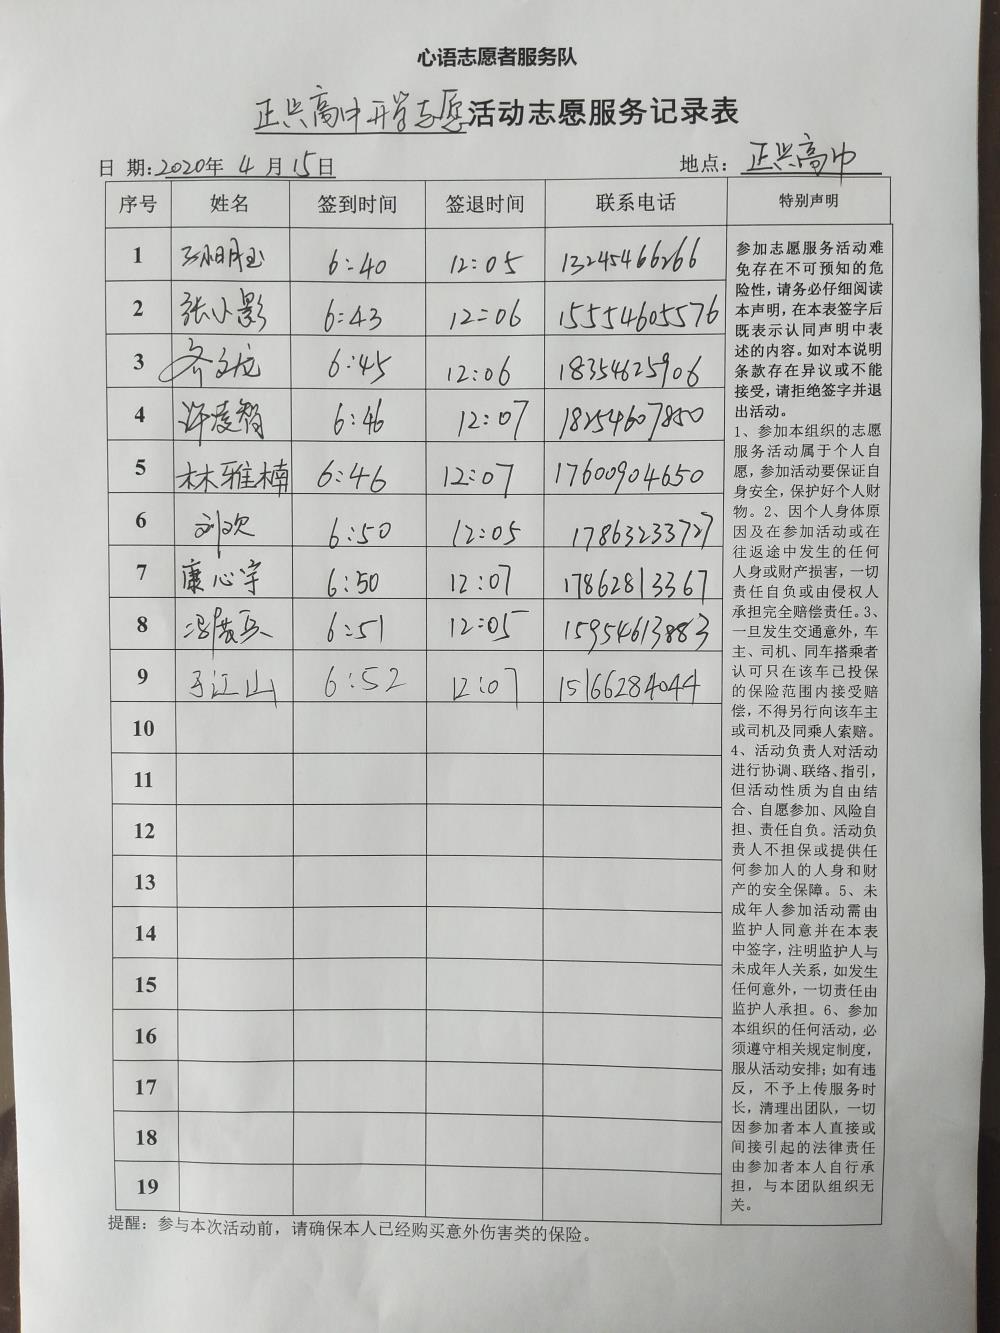 心语志愿者服务队
正兴高中开学志愿活动志愿服务记录表
日 期:2020年 4 月 15日 地点: 正兴高中
序号 姓名 签到时间 签退时间 联系电话 特别声明
1 6:40 12:05 13245466266
2 张小影 6:43 12:06 15554605576
3 齐文龙 6:45 12:06 18354625906
4 许凌智 6:46 12:07 18254607850
5 林雅楠 6:46 12:07 17600904650
6 刘欢 6:50 12:05 17863233727
7 康心宇 6:50 12:07 17862813367
8 6:51 12:05 15954613883
9 于江山 6:52 12:07 15166284044
10
11
12
13
14
15
16
17
18
19
参加志愿服务活动难
免存在不可预知的危
险性,请务必仔细阅读
本声明,在本表签字后
既表示认同声明中表
述的内容。如对本说明
条款存在异议或不能
接受,请拒绝签字并退
出活动。
1、参加本组织的志愿
服务活动属于个人自
愿,参加活动要保证自
身安全,保护好个人财
物。2、因个人身体原
因及在参加活动或在
往返途中发生的任何
人身或财产损害,一切
责任自负或由侵权人
承担完全赔偿责任。3、
一旦发生交通意外,车
主、司机、同车搭乘者
认可只在该车已投保
的保险范围内接受赔
偿,不得另行向该车主
或司机及同乘人索赔。
4、活动负责人对活动
进行协调、联络、指引,
但活动性质为自由结
合、自愿参加、风险自
担、责任自负。活动负
责人不担保或提供任
何参加人的人身和财
产的安全保障。5、未
成年人参加活动需由
监护人同意并在本表
中签字,注明监护人与
未成年人关系,如发生
任何意外,一切责任由
监护人承担。6、参加
本组织的任何活动,必
须遵守相关规定制度,
服从活动安排;如有违
反,不予上传服务时
长,清理出团队,一切
因参加者本人直接或
间接引起的法律责任
由参加者本人自行承
担,与本团队组织无
关。
提醒:参与本次活动前,请确保本人已经购买意外伤害类的保险。